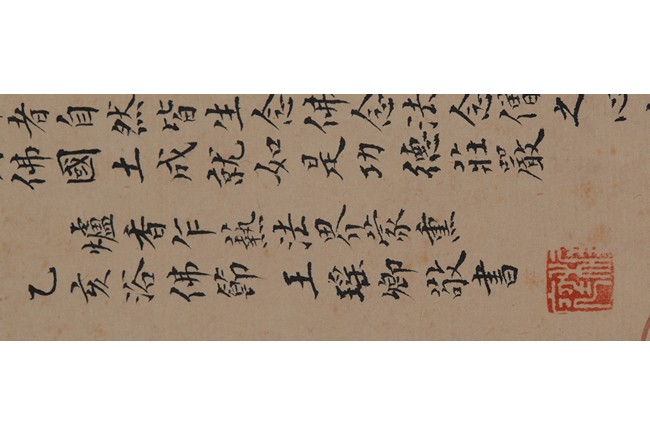 者自然皆生念佛念法念僧之心
佛國土成就如是功德莊嚴
爐香乍爇法界蒙熏
乙亥浴佛節 王瑤卿敬書